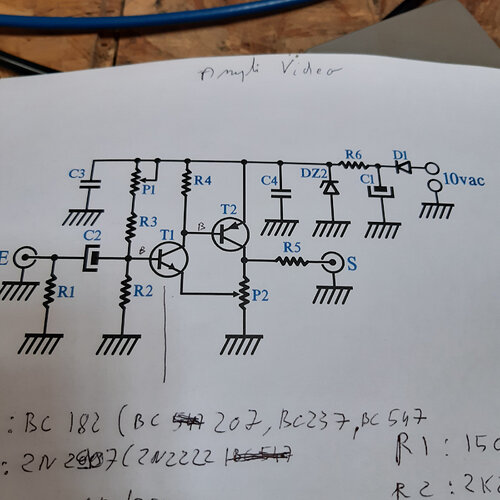 Ampli Video
C3
P1
R4
C4
DZ2
R6
D1
C1
10vac
R3
B
T2
C2
B
T1
R5
E
S
R1
R2
P2
: BC 182 (BC 207, BC237, BC 547
: 2N2907 (2N2222
R1 : 150
R2 : 2K